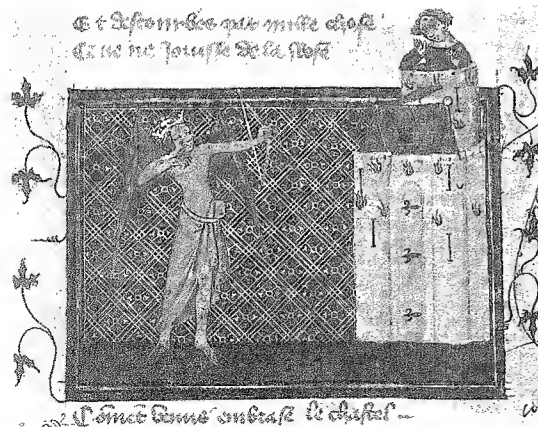 Et destourbes par mille chose
ne Jouisse de la Rose
Coment venus enbrase le chastel